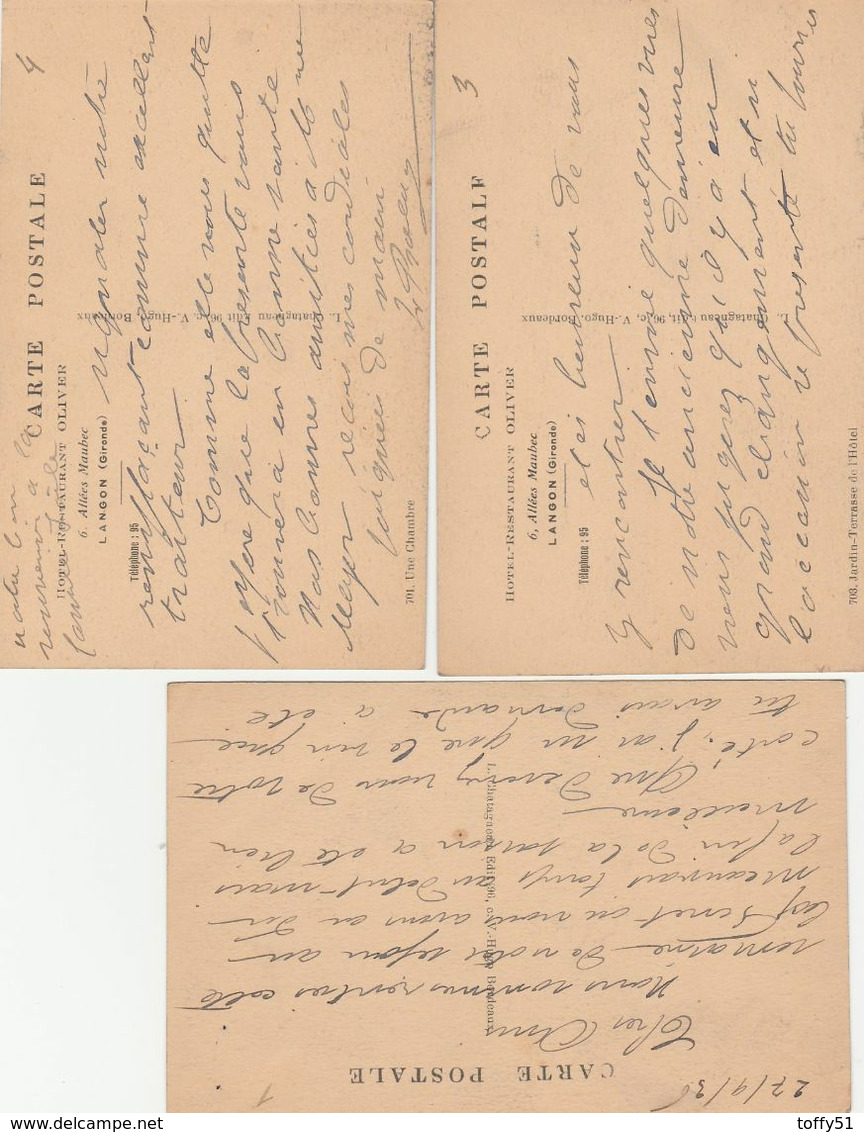 27/9/36
1
CARTE POSTALE
L. Chatagneau Edit 96, c. V.-Hugo Bordeaux
Chers Amis
Nous sommes rentrés cette
semaine de notre séjour au
Cap Ferret où nous avons eu du
mauvais temps au début mais
la fin de la saison a été bien
meilleure
Que devenez vous de votre
coté, j'ai vu que le vin que
tu avais demandé a été
3
CARTE POSTALE
HOTEL-RESTAURANT OLIVER
6, Allées Maubec
LANGON (Gironde)
Téléphone : 95
L. Chatagneau Edit, 96, c. V.-Hugo, Bordeaux
703. Jardin-Terrasse de l'Hôtel
et es heureux de vous
y rencontrer
Je t'envoie quelques vues
de notre ancienne demeure
vous jugerez qu'il y a eu
grand changement et si
l'occasion se présente tu pourras
4
CARTE POSTALE
HOTEL-RESTAURANT OLIVER
6, Allées Maubec
LANGON (Gironde)
Téléphone : 95
L. Chatagneau Edit 96, c. V.-Hugo, Bordeaux
701. Une Chambre
signaler notre
remplaçant comme excellent
traiteur
Comme elle vous quitte
j'espère que la présente vous
trouvera en bonne santé
Nos bonnes amitiés à Mme
Meyer reçois mes cordiales
poignées de main
notre bon
souvenir à la
famille
toffy51